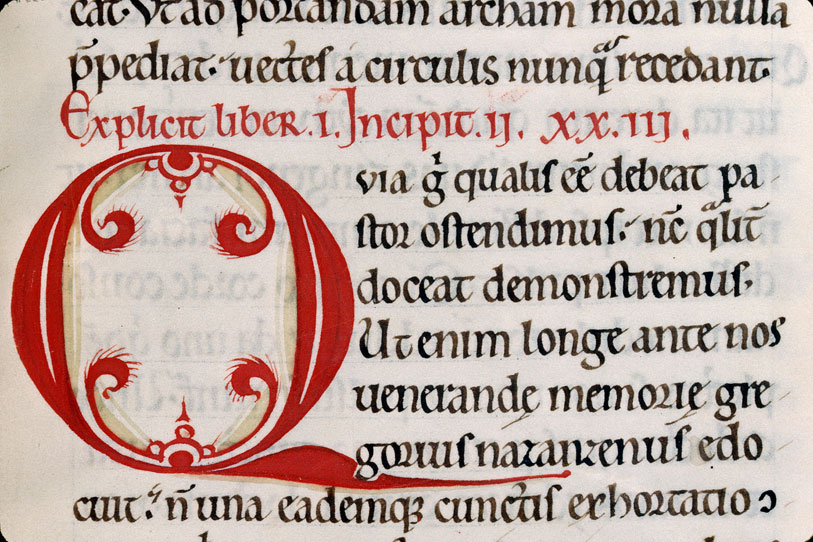 cat. Ut ad portandam archam mora nulla
p̄pediat. uectes a circulis nunqᷓ recedant.
Explicit liber .i. Incipit .ii. xx.iii.
Quia g̊ qualis eē debeat pa-
stor ostendimus. nc̄ qᷓlit̄
doceat demonstremus.
Ut enim longe ante nos
uenerandę memorię gre
gorius nazanzenus edo
cuit. n̄ una eademqꝫ cunctis exhortatio ɔ